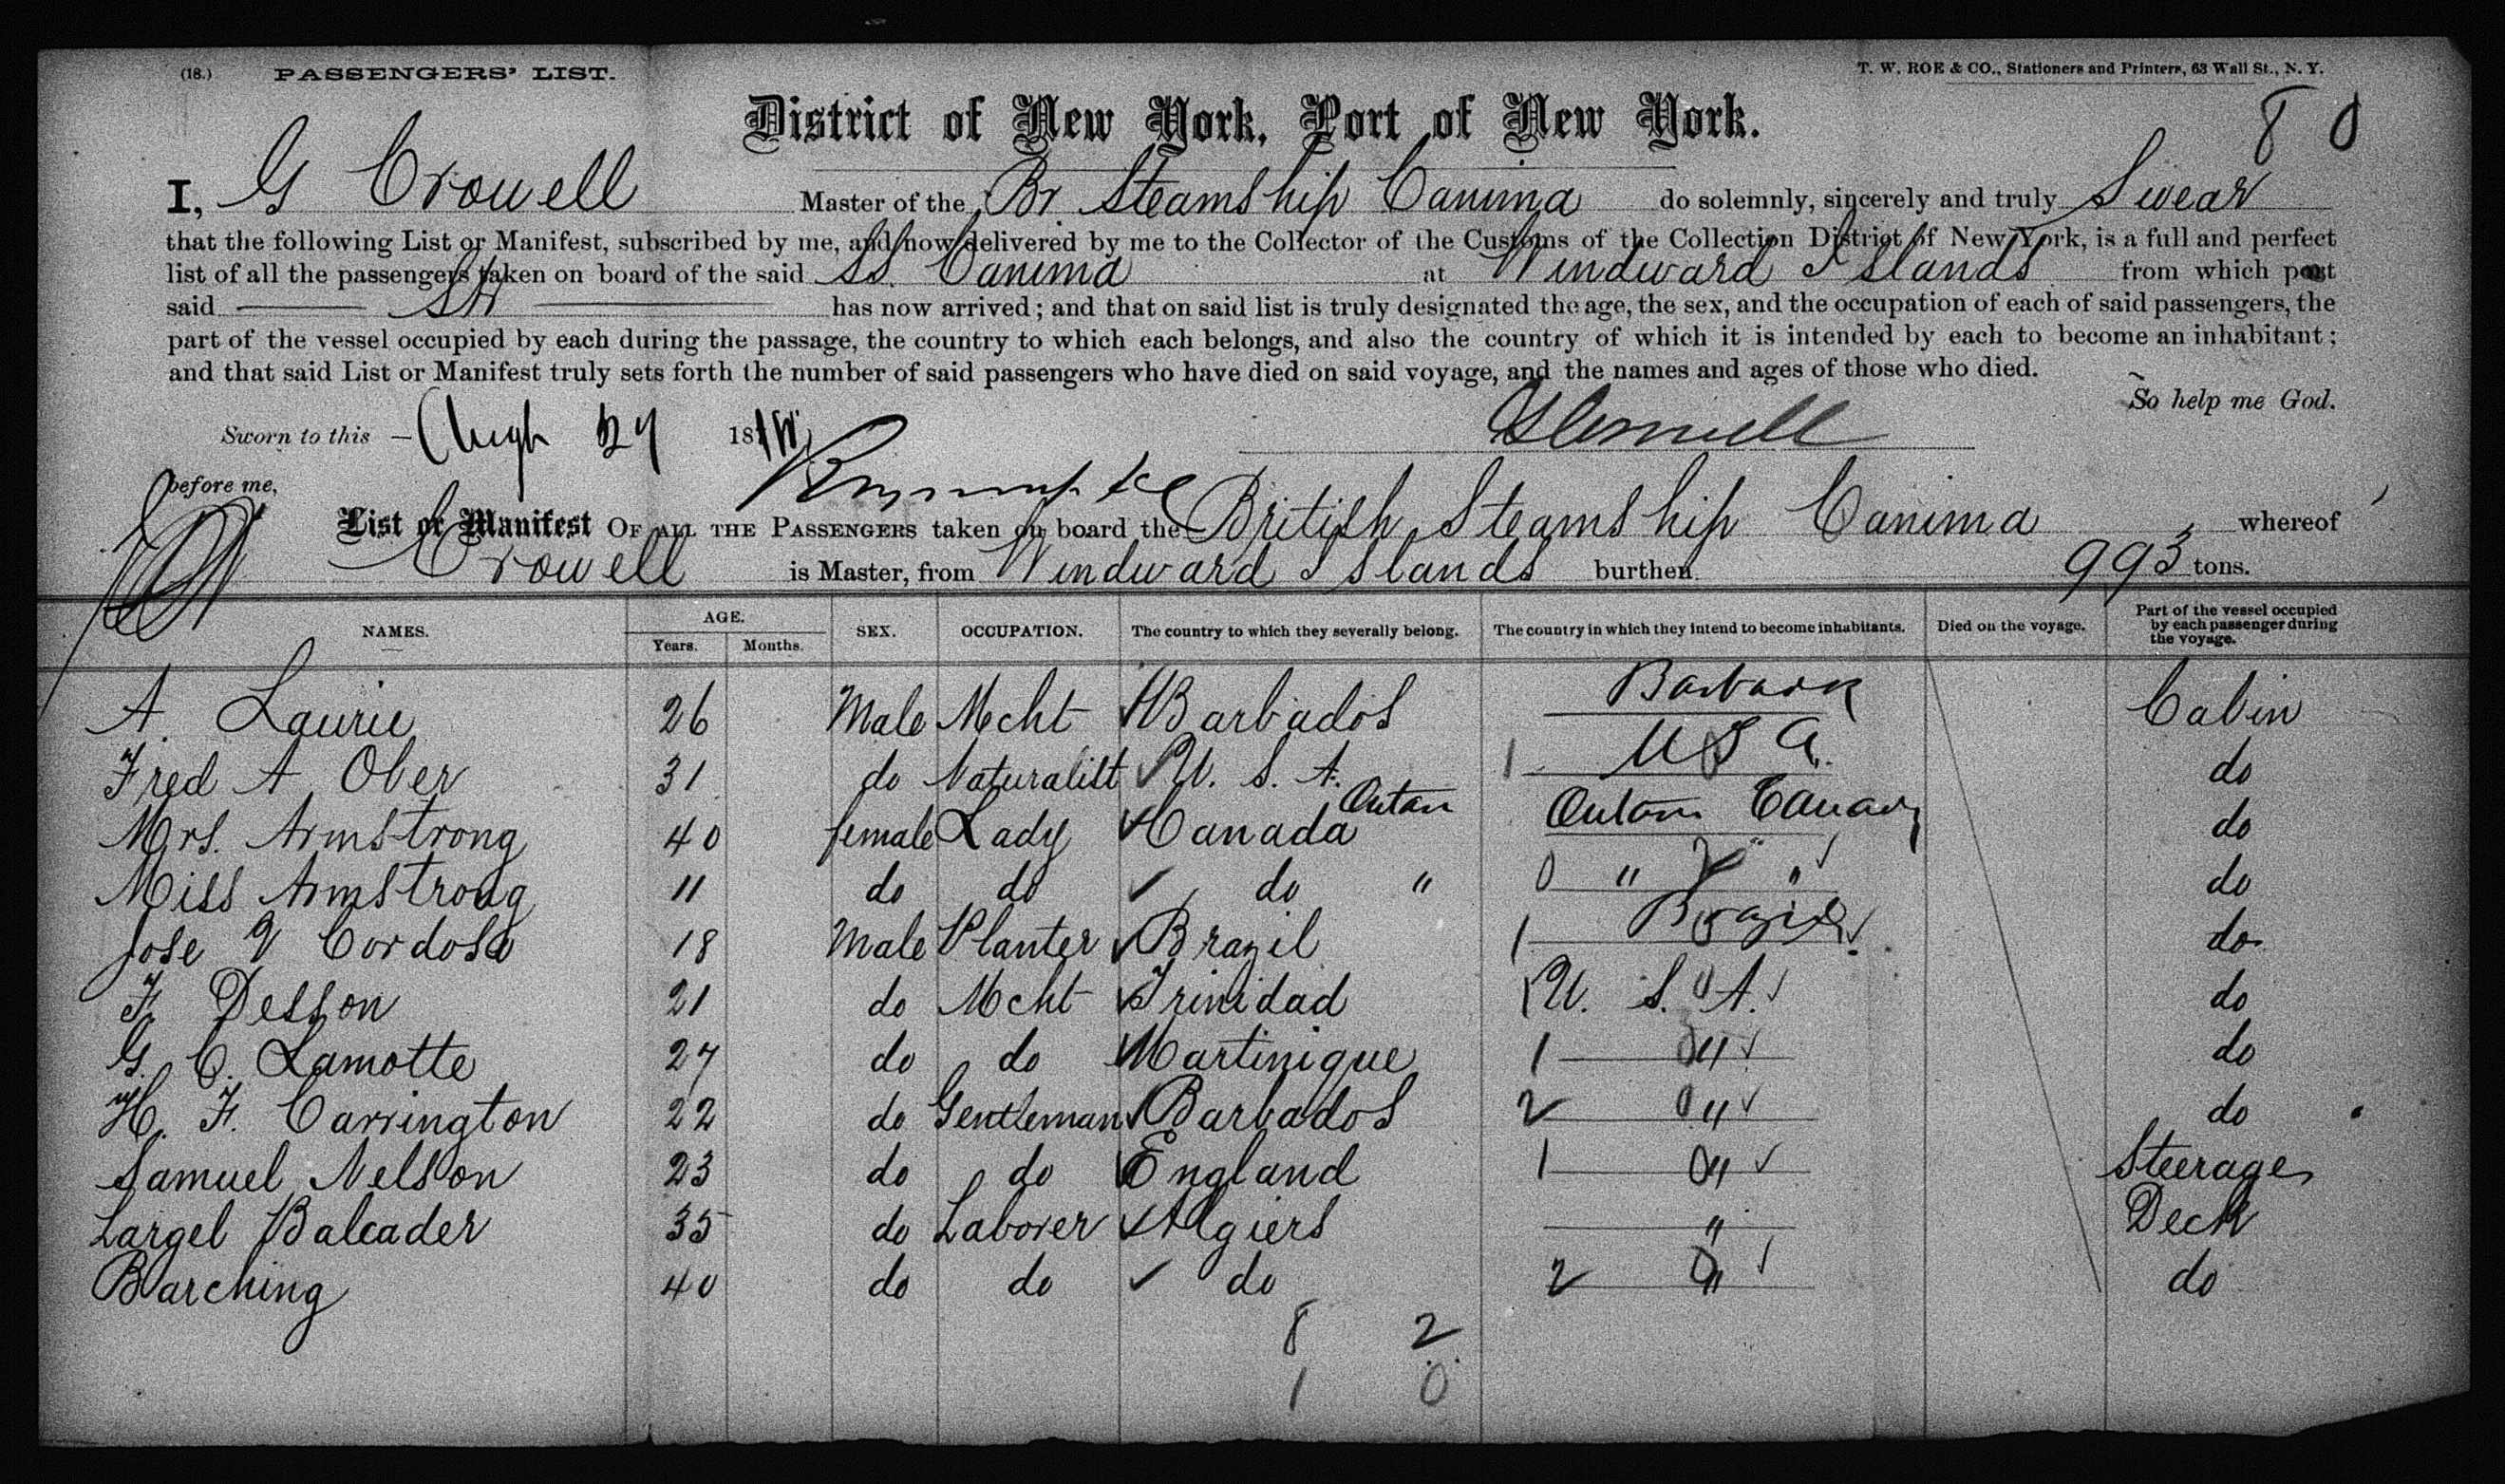 (18.) PASSENGERS' LIST. T. W. ROE & CO., Stationers and Printers, 63 Wall St., N. Y.
District of New York, Port of New York. 8 0
I, G Crowell Master of the Br. Steamship Canima do solemnly, sincerely and truly Swear
that the following List or Manifest, subscribed by me, and now delivered by me to the Collector of the Customs of the Collection District of New York, is a full and perfect
list of all the passengers taken on board of the said SS. Canima at Windward Islands from which port
said Str has now arrived; and that on said list is truly designated the age, the sex, and the occupation of each of said passengers, the
part of the vessel occupied by each during the passage, the country to which each belongs, and also the country of which it is intended by each to become an inhabitant;
and that said List or Manifest truly sets forth the number of said passengers who have died on said voyage, and the names and ages of those who died.
So help me God.
Sworn to this 187 G Crowell
before me,
List or Manifest OF ALL THE PASSENGERS taken on board the British Steamship Canima whereof
Crowell is Master, from Windward Islands burthen 993 tons.
NAMES. AGE. Years. Months. SEX. OCCUPATION. The country to which they severally belong. The country in which they intend to become inhabitants. Died on the voyage. Part of the vessel occupied by each passenger during the voyage.
A. Laurie 26 Male Mcht Barbados Cabin
Fred A Ober 31 do Naturalist U. S. A. 1 U S A. do
Mrs. Armstrong 40 female Lady Canada do
Miss Armstrong 11 do do do " 0 " " do
Jose V Cordosa 18 Male Planter Brazil 1 Brazil do
F. Desson 21 do Mcht Trinidad 1 U. S. A. do
G. C. Lamotte 27 do do Martinique 1 " do
H. F. Carrington 22 do Gentleman Barbados 2 " do
Samuel Nelson 23 do do England 1 " Steerage
Largel Balcader 35 do Laborer Algiers " Deck
Barching 40 do do do 2 " do
8 2
1 0